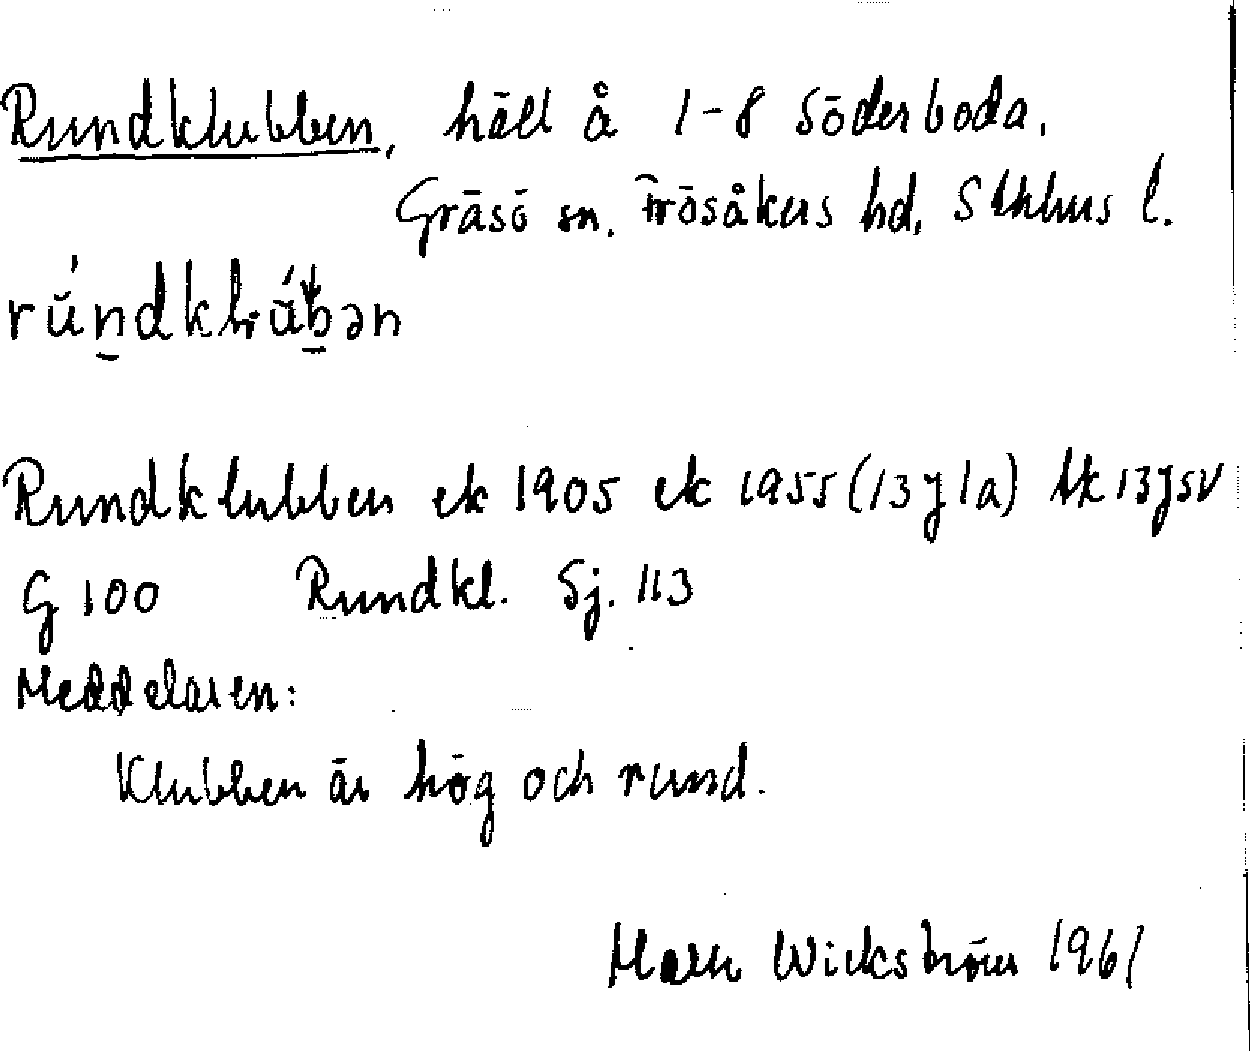 Rundklubben, häll å 1-8 Söderboda.
Gräsö sn. Frösåkers hd, Sthlms l.
Rundklubben ek 1905 ek 1955 (13 J 1a) tk 13JSV
G 100 Rundkl. Sj. 113
Meddelaren:
Klubben är hög och rund.
Wickström 1961